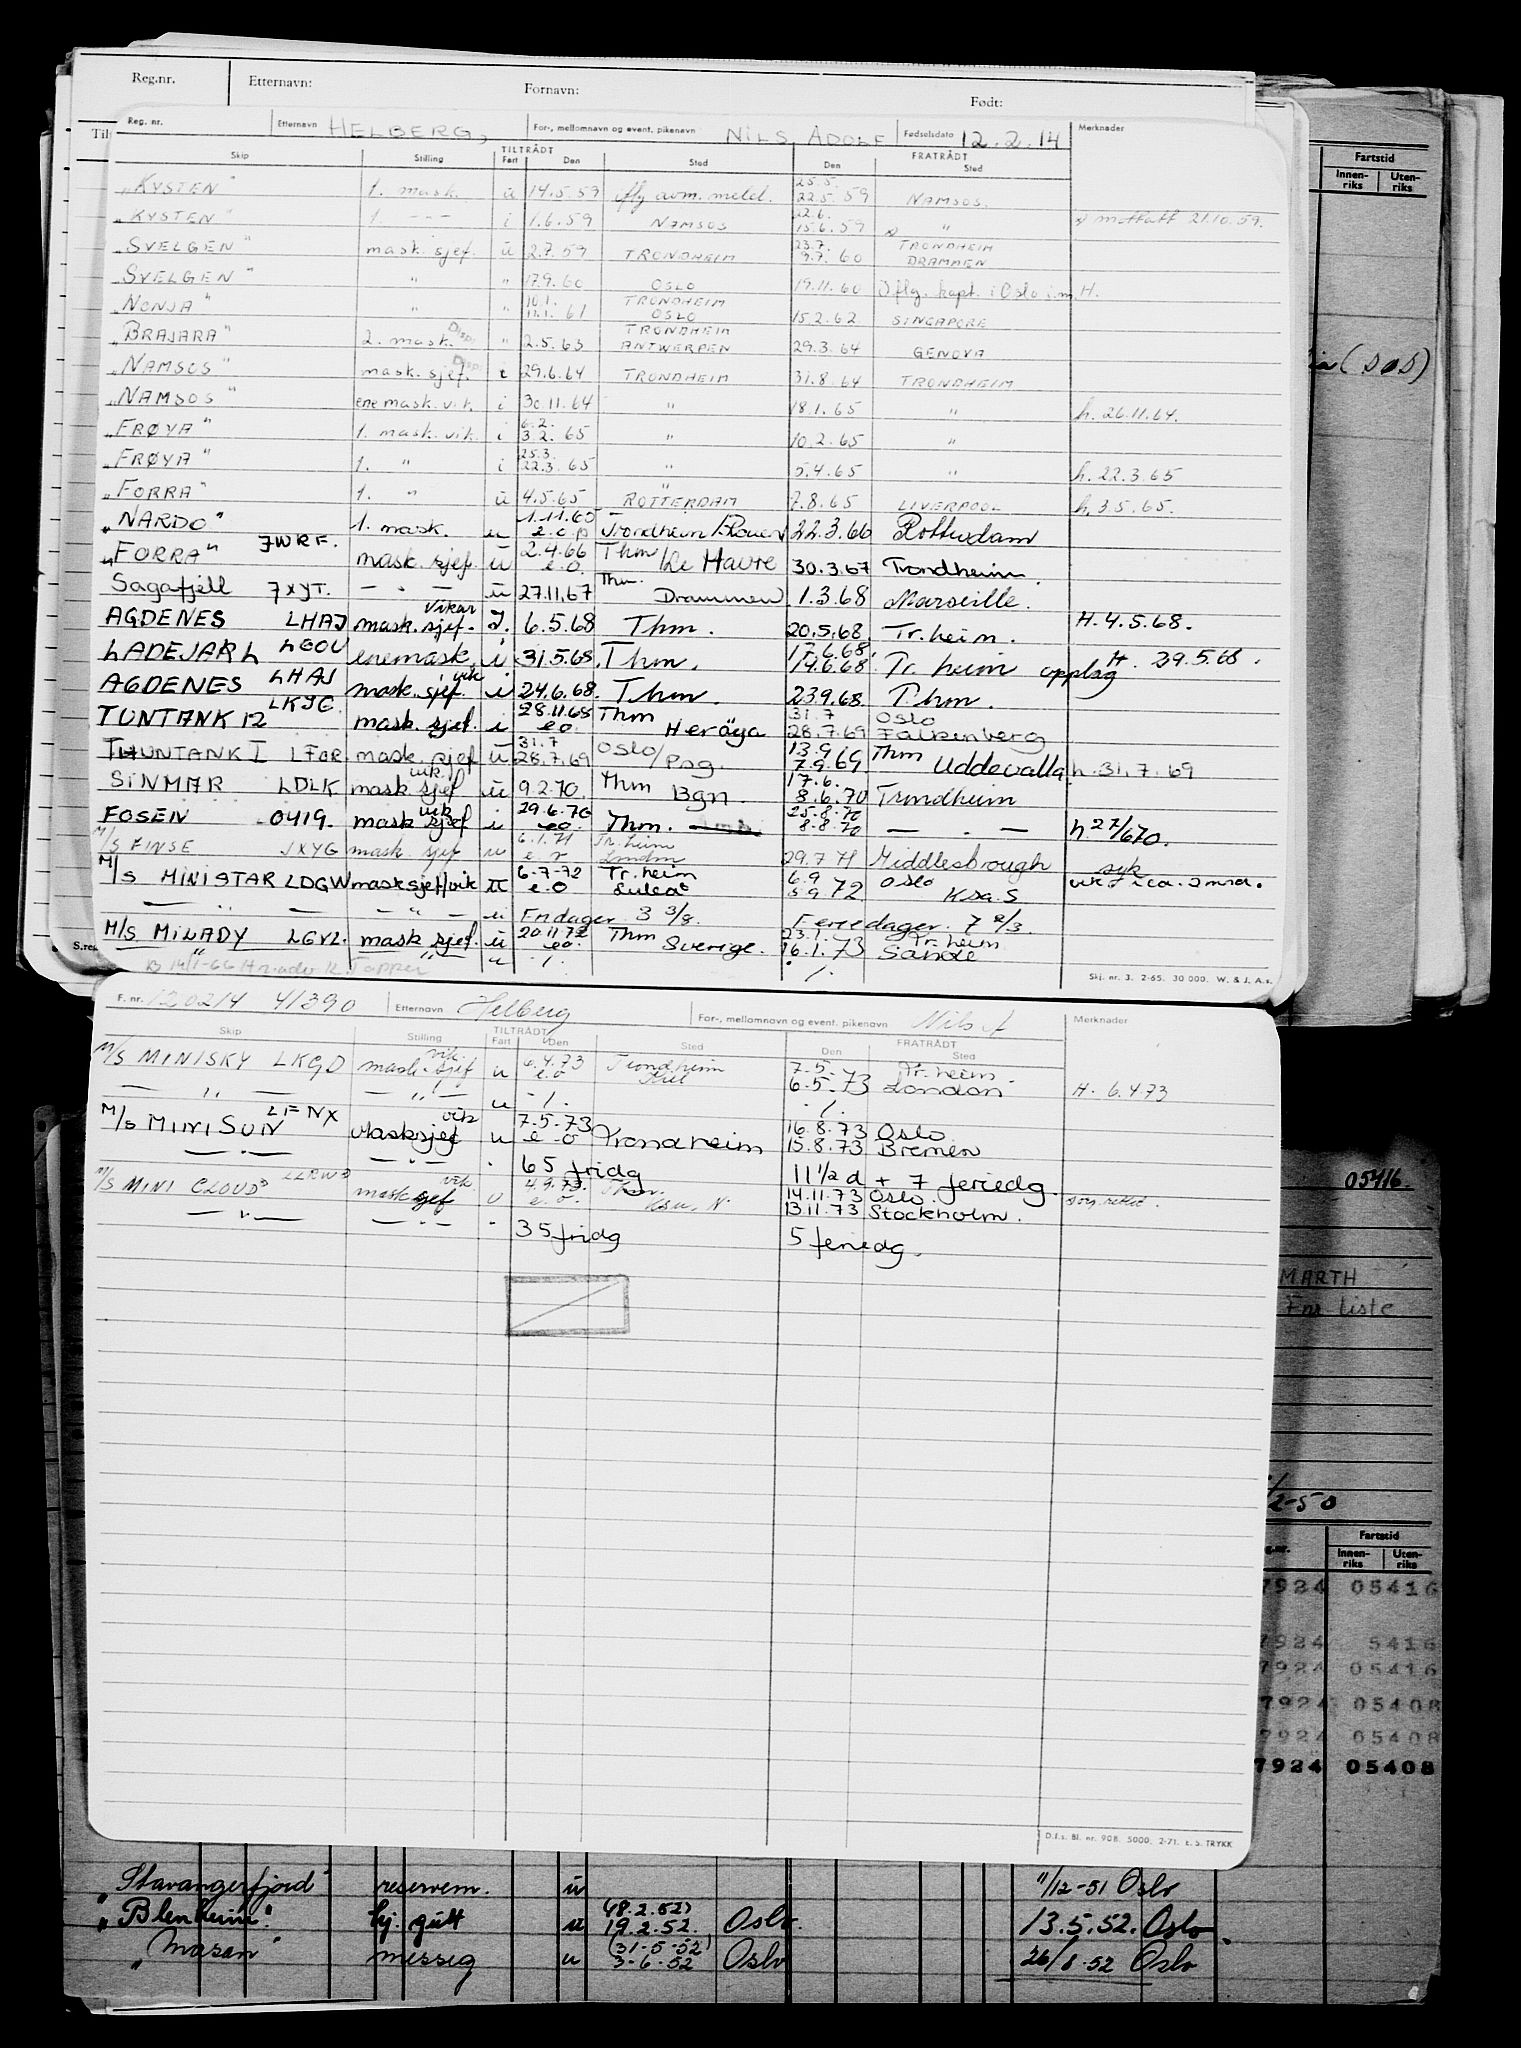 Reg.nr. Etternavn: Fornavn: Født:
Reg. nr. Etternavn HELBERG, For-, mellomnavn og event. pikenavn NILS ADOLF Fødselsdato 12.2.14 Merknader
Skip Stilling TILTRÅDT Fart Den Sted Den FRATRÅDT Sted
„KYSTEN" 1. mask. u 14.5.59 iflg avm. meld. 25.5. 22.5.59 NAMSOS.
„KYSTEN" 1. -"- i 1.6.59 NAMSOS 22.6. 15.6.59 " mottatt 21.10.59.
„SVELGEN" mask. sjef. u 2.7.59 TRONDHEIM 23.7. 9.7.60 TRONDHEIM DRAMMEN
„SVELGEN" " " 17.9.60 OSLO 19.11.60 Iflg. kapt. i Oslo i.m.H.
„NONJA" " " 10.1. 11.1.61 TRONDHEIM OSLO 15.2.62 SINGAPORE
„BRAJARA" 2. mask. Disp. " 2.5.63 TRONDHEIM ANTWERPEN 29.3.64 GENOVA
„NAMSOS" mask. sjef. Disp. i 29.6.64 TRONDHEIM 31.8.64 TRONDHEIM
„NAMSOS" ene mask. vik. i 30.11.64 " 18.1.65 " h. 26.11.64.
„FRØYA" 1. mask. vik. i 6.2. 3.2.65 " 10.2.65 "
„FRØYA" 1. " i 25.3. 22.3.65 " 5.4.65 " h. 22.3.65
„FORRA" 1. " u 4.5.65 ROTTERDAM 7.8.65 LIVERPOOL h. 3.5.65.
„NARDO" 1. mask. u 1.11.65 e.o. Trondheim/Rouen 22.3.66 Rotterdam
„FORRA" JWRF. mask. sjef. u 2.4.66 e.o. Thm/Le Havre 30.3.67 Trondheim.
Sagafjell JXYT. - " - u 27.11.67 Thm. Drammen 1.3.68 Marseille.
AGDENES LHAJ mask. sjef. vikar I. 6.5.68 Thm. 20.5.68. Tr.heim. H. 4.5.68.
LADEJARL LEOU enemask. i 31.5.68. Thm. 17.6.68. 14.6.68. Tr. heim opplag H. 29.5.68.
AGDENES LHAJ mask. sjef. vik i 24.6.68. Thm. 23.9.68. Thm.
TUNTANK 12 LKJE. mask. sjef. i 28.11.68 e.o. Thm Herøya 31.7 28.7.69 Oslo Falkenberg
TUNTANK I LFOR mask. sjef u 31.7 28.7.69 Oslo/Psg. 13.9 7.9.69 Thm Uddevalla. h. 31.7.69
SINMAR LDLK mask. sjef vik. u 9.2.70. Thm Bgn. 17.6. 8.6.70 Trondheim
FOSEN 0419. mask sjef vik i 29.6.70 e.o. Thm. 25.8.70 8.8.70 - . - h. 27/6 70.
M/S FINSE JXYG mask. sjef u 6.1.71 Tr.heim London 29.7.71 Middlesbrough
M/S MINISTAR LDGW masksjef/vik u 6-7-72 e.o Tr.heim Luleå 6.9 5.9 72 Oslo Ksa. S syk
- " - - " - u Fridager 3 3/8. Feriedager 7 2/3.
M/S MILADY LGVZ. mask sjef. u 20.11.72 e.o. Thm Sverige. 23.1. 16.1.73 Tr.heim Sande
" " u -/. -/.
Skj. nr. 3. 2-65. 30 000. W. & J. A.s.
F. nr. 120214 41390 Etternavn Helberg For-, mellomnavn og event. pikenavn Nils A Merknader
Skip Stilling TILTRÅDT Fart Den Sted Den FRATRÅDT Sted
M/S MINISKY LKGD mask. sjef vik. u 6.4.73 e.o Trondheim Kiel 7.5. 6.5.73 Tr.heim London H. 6.4.73
- " - - " - u -/. -/.
M/S MINI SUN LFNX Masksjef vik u 7.5.73 e.o Trondheim 16.8.73 15.8.73 Oslo Bremen
- " - - " - " 65 fridg 11½ d + 7 feriedg.
M/S MINI CLOUD LLRW mask sjef vik. u 4.9.73. e.o. Thm. Ksu. N. 14.11.73 13.11.73 Oslo. Stockholm.
- " - - " - " 35 fridg 5 feriedg.
D.f.s. Bl. nr. 908. 5000. 2-71. E. S. TRYKK
Fartstid
Innen-riks Uten-riks
(SOS)
05416.
MARTH
Fnr liste
2-50
Fartstid
Innen-riks Uten-riks
7924 05416
7924 5416
7924 05416
7924 05408
7924 05408
7924 05408
„Stavangerfjord" reservem. u 11/12-51 Oslo
„Blenheim" hj. gutt u (18.2.52) 19.2.52. Oslo. 13.5.52. Oslo.
„Masan" messeg u (31-5-52) 3-6-52 Oslo 26/8.52 Oslo